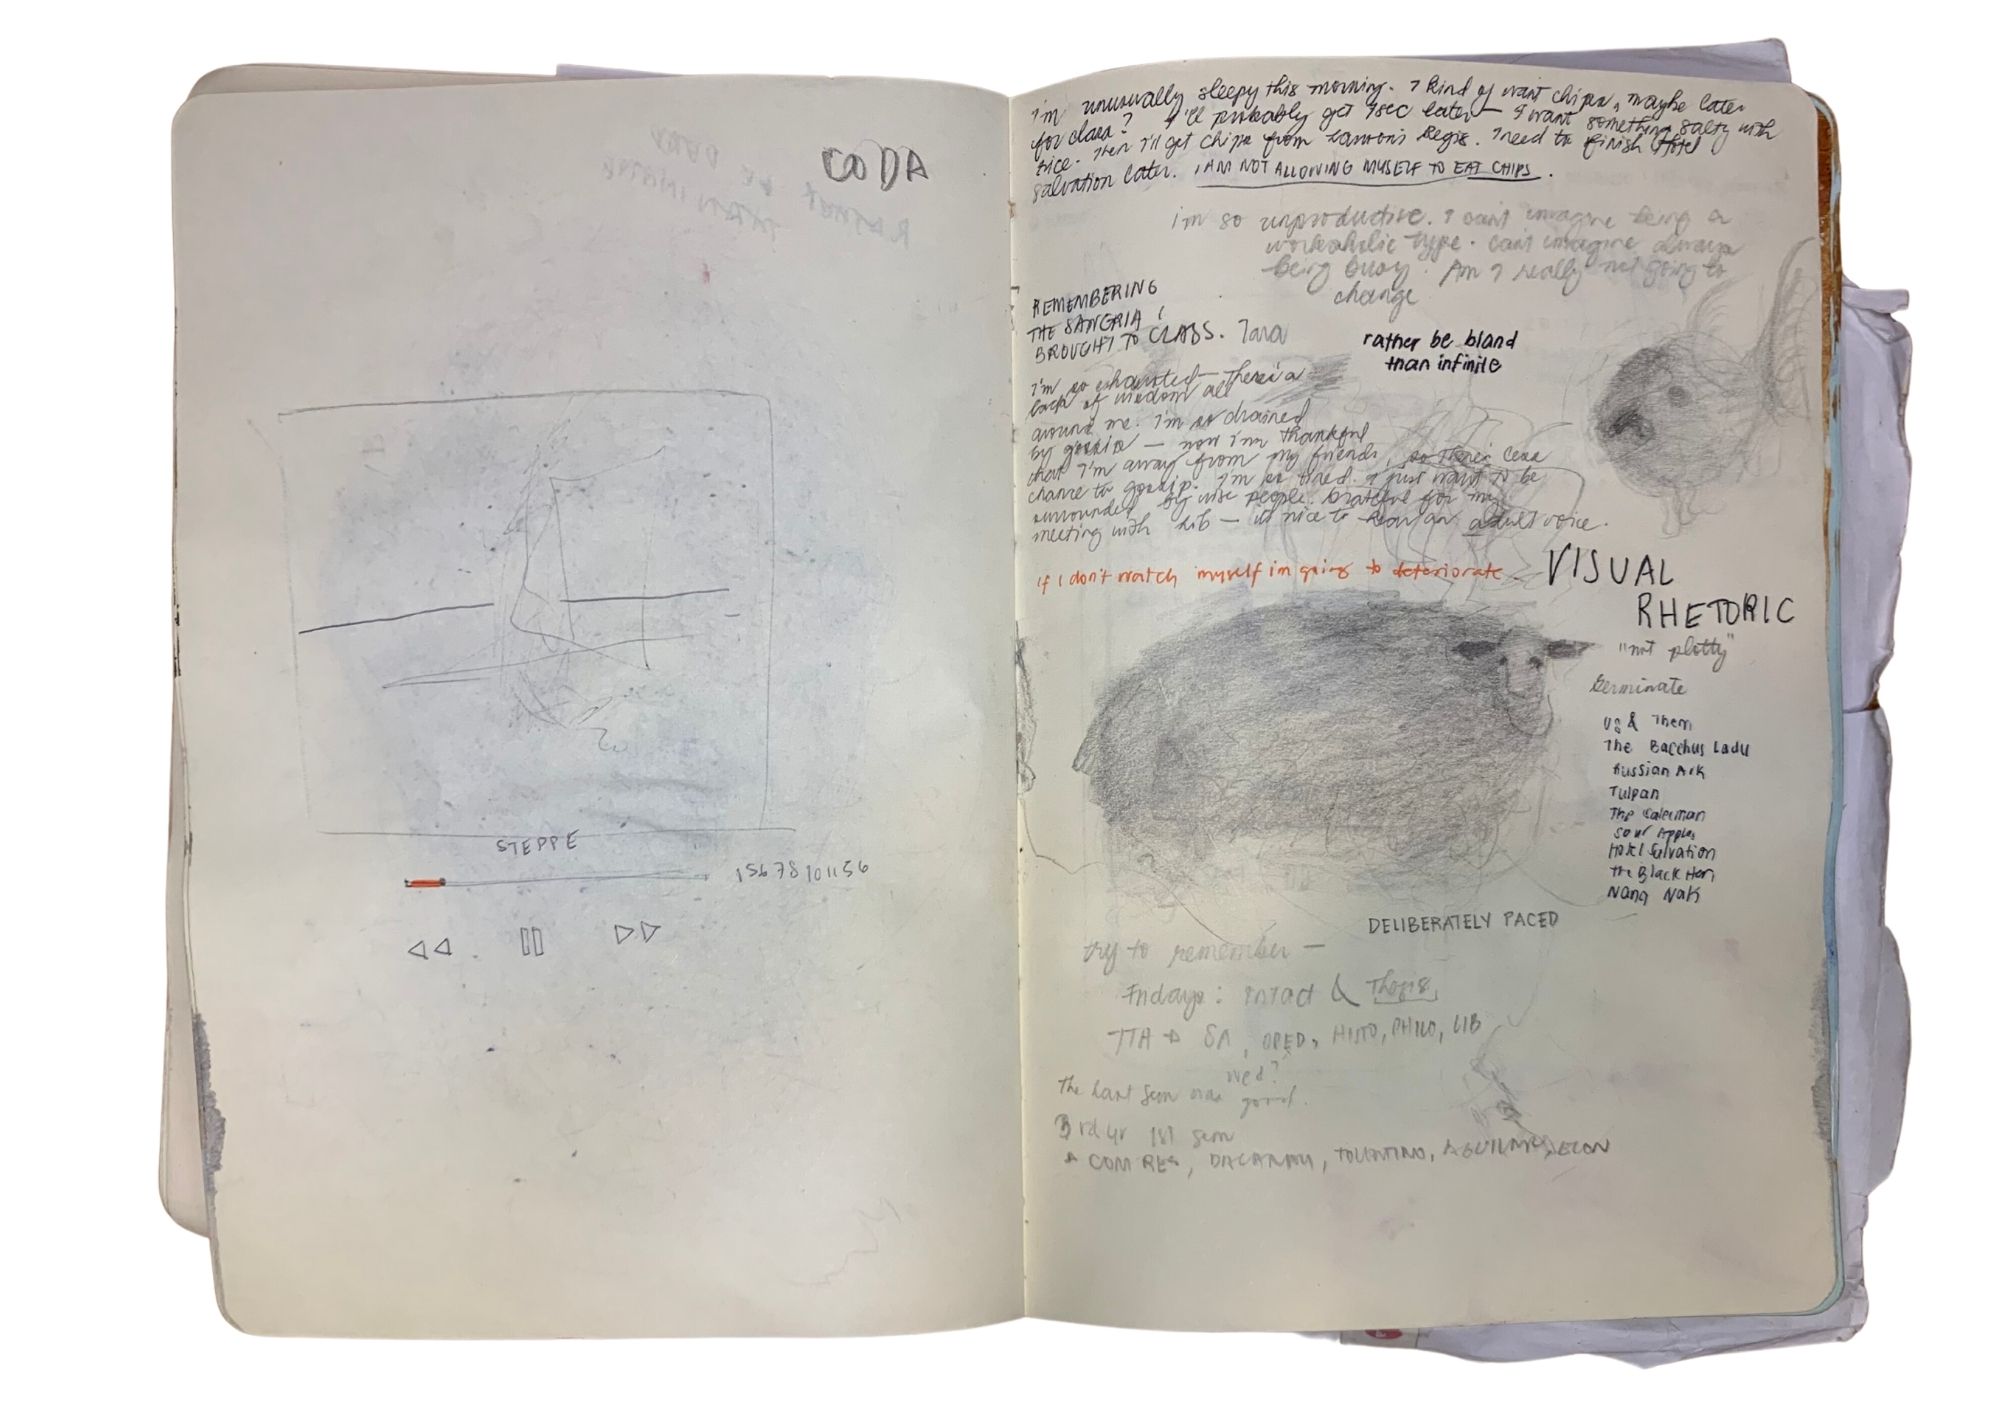 CODA
STEPPE
15678101156
I'm unusually sleepy this morning. I kind of want chips, maybe later
for class? I'll probably get 1sec later — I want something salty with
rice. Then I'll get chips from Lawson's Regis. I need to finish Hotel
Salvation later. I AM NOT ALLOWING MYSELF TO EAT CHIPS.
i'm so unproductive. I can't imagine being a
workaholic type. can't imagine always
being busy. Am I really not going to
change
REMEMBERING
THE SANGRIA I
BROUGHT TO CLASS. Tara
rather be bland
than infinite
I'm so exhausted — There's a
lack of wisdom all
around me. I'm so drained
by gossip — now i'm thankful
that I'm away from my friends, so there's less
chance to gossip. I'm so tired. I just want to be
surrounded by wise people. Grateful for my
meeting with Lib — it's nice to hear an adult voice.
if I don't watch myself im going to deteriorate.
VISUAL
RHETORIC
"not plotty"
Germinate
Us & Them
The Bacchus Lady
Russian Ark
Tulpan
The Salesman
Sour Apples
Hotel Salvation
The Black Hen
Nang Nak
DELIBERATELY PACED
try to remember —
Fridays: INTACT &
TTH → SA, OPED, HISTO, PHILO, LIB
wed?
The last sem was good.
3rd yr 1st sem
COM RES, TOLENTINO, AGUILAR, ECON